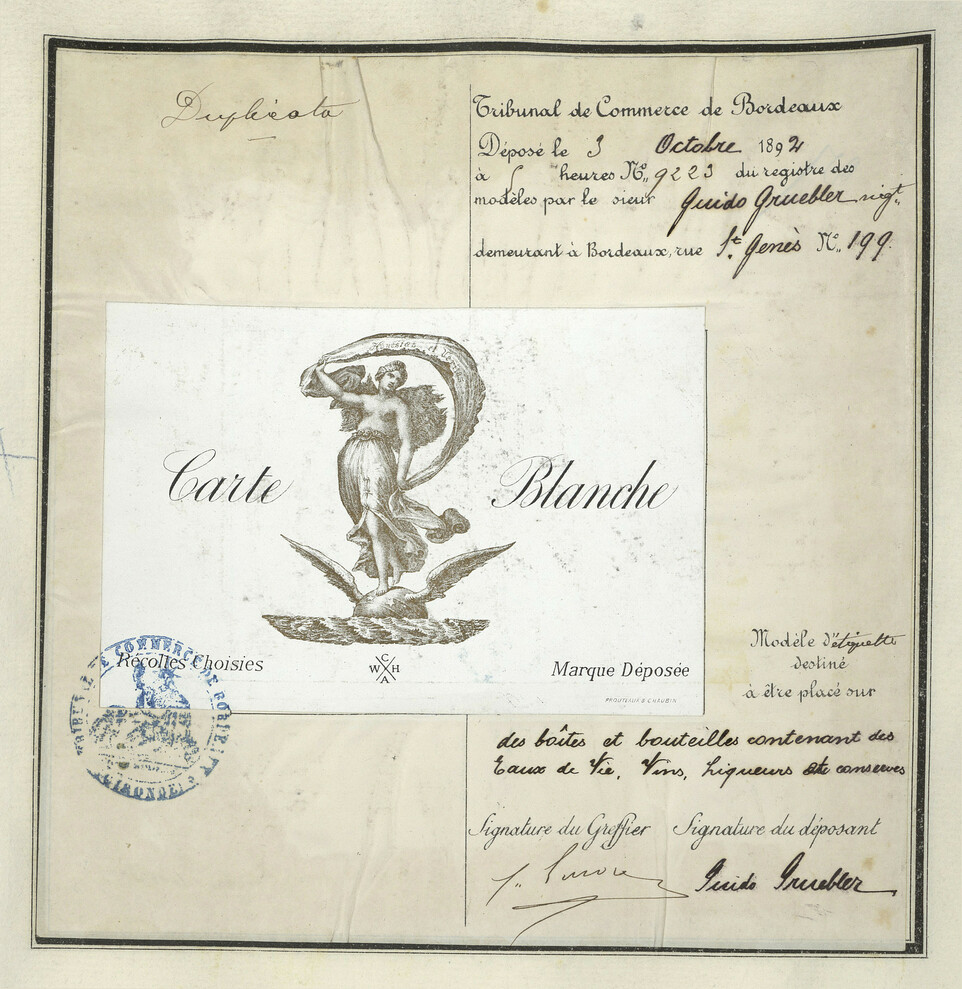 Duplicata
Tribunal de Commerce de Bordeaux
Déposé le 3 Octobre 1892
à heures N°. 9223 du registre des
modèles par le sieur Guido Gruebler négt.
demeurant à Bordeaux, rue St. Genès N°. 199.
Honesta et
Carte Blanche
Récoltes Choisies
W C H A
Marque Déposée
PROUTEAUX & CHAUBIN
TRIBUNAL DE COMMERCE DE BORDEAUX
GIRONDE
Modèle d'étiquette
destiné
à être placé sur
des boîtes et bouteilles contenant des
Eaux de Vie, Vins, Liqueurs conserves
Signature du Greffier Signature du déposant
Guido Gruebler